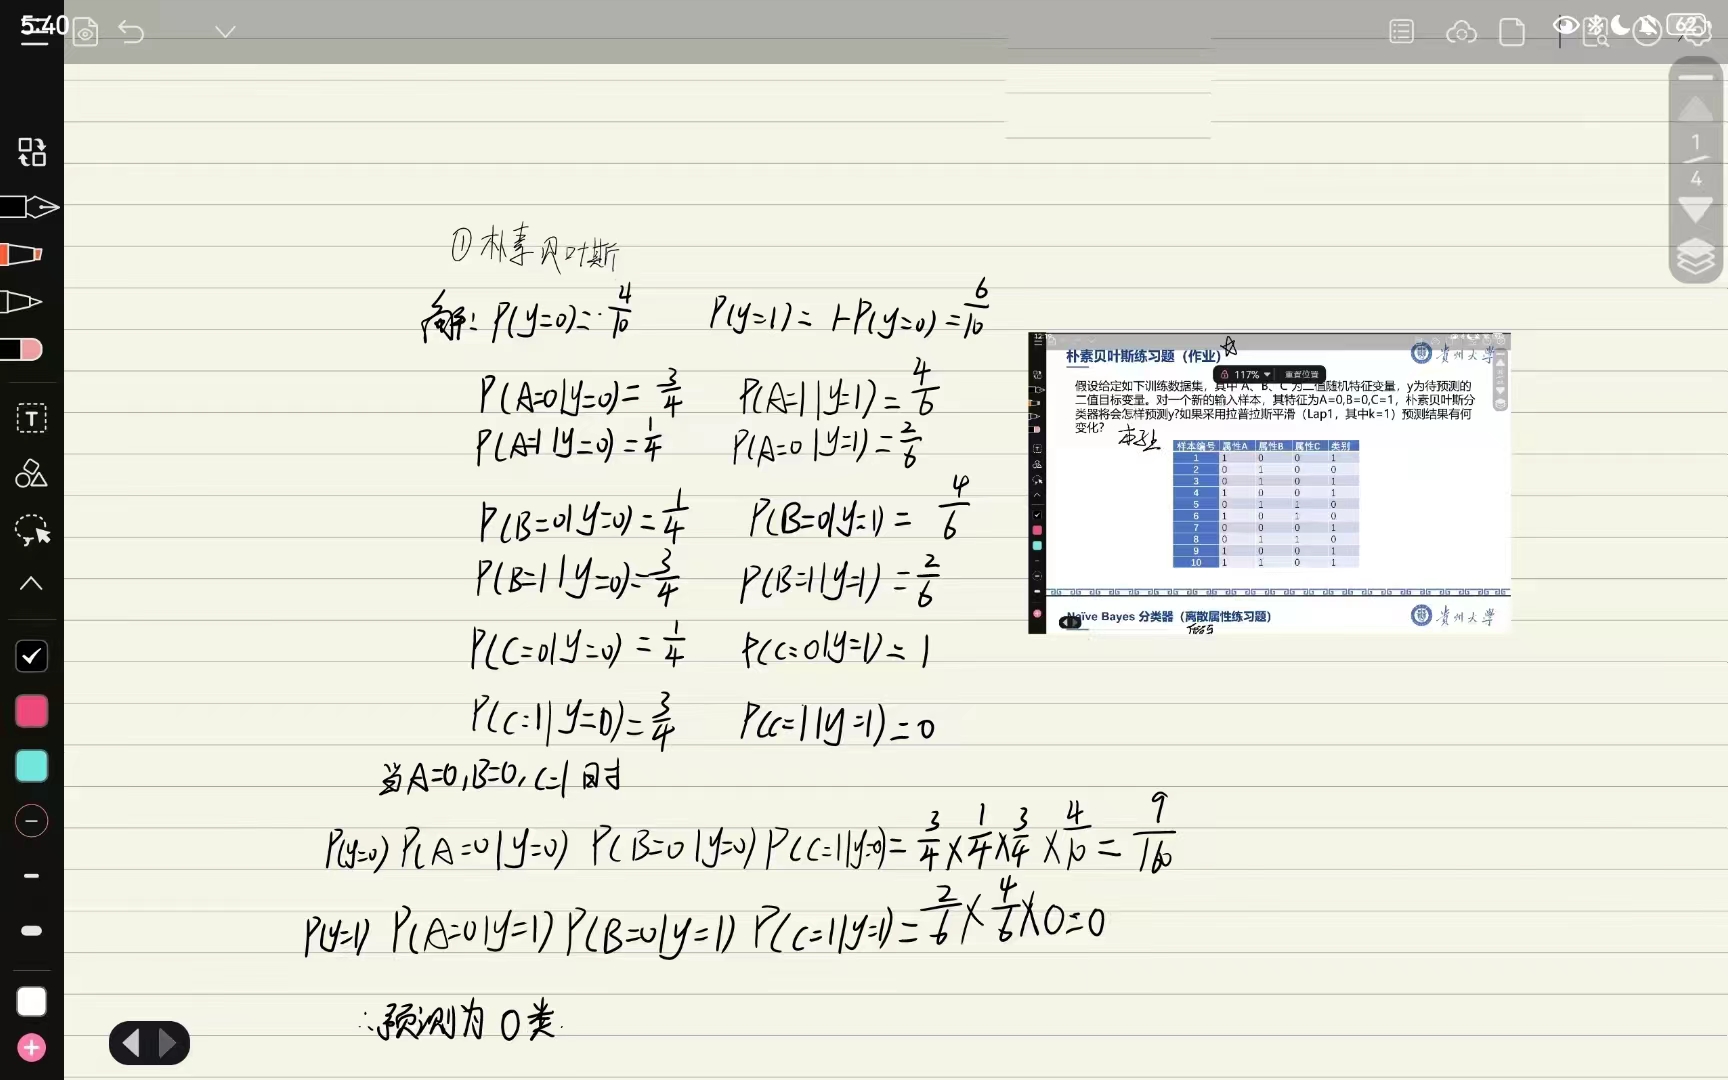 5:40
62
① 朴素贝叶斯
解: P(y=0)=4/10 P(y=1)=1-P(y=0)=6/10
P(A=0|y=0)=3/4 P(A=1|y=1)=4/6
P(A=1|y=0)=1/4 P(A=0|y=1)=2/6
P(B=0|y=0)=1/4 P(B=0|y=1)=4/6
P(B=1|y=0)=3/4 P(B=1|y=1)=2/6
P(C=0|y=0)=1/4 P(C=0|y=1)=1
P(C=1|y=0)=3/4 P(C=1|y=1)=0
当A=0,B=0,C=1时
P(y=0) P(A=0|y=0) P(B=0|y=0) P(C=1|y=0)=3/4×1/4×3/4×4/10=9/160
P(y=1) P(A=0|y=1) P(B=0|y=1) P(C=1|y=1)=2/6×4/6×0=0
∴预测为0类.
朴素贝叶斯练习题（作业）☆
贵州大学
117% 重置位置
假设给定如下训练数据集，其中 A、B、C 为二值随机特征变量，y为待预测的
二值目标变量。对一个新的输入样本，其特征为A=0,B=0,C=1，朴素贝叶斯分
类器将会怎样预测y?如果采用拉普拉斯平滑（Lap1，其中k=1）预测结果有何
变化？
样本编号 属性A 属性B 属性C 类别
1 1 0 0 1
2 0 1 0 0
3 0 1 0 1
4 1 0 0 1
5 0 1 1 0
6 1 0 1 0
7 0 0 0 1
8 0 1 1 0
9 1 0 0 1
10 1 1 0 1
Naïve Bayes 分类器（离散属性练习题）
贵州大学
1
4
T